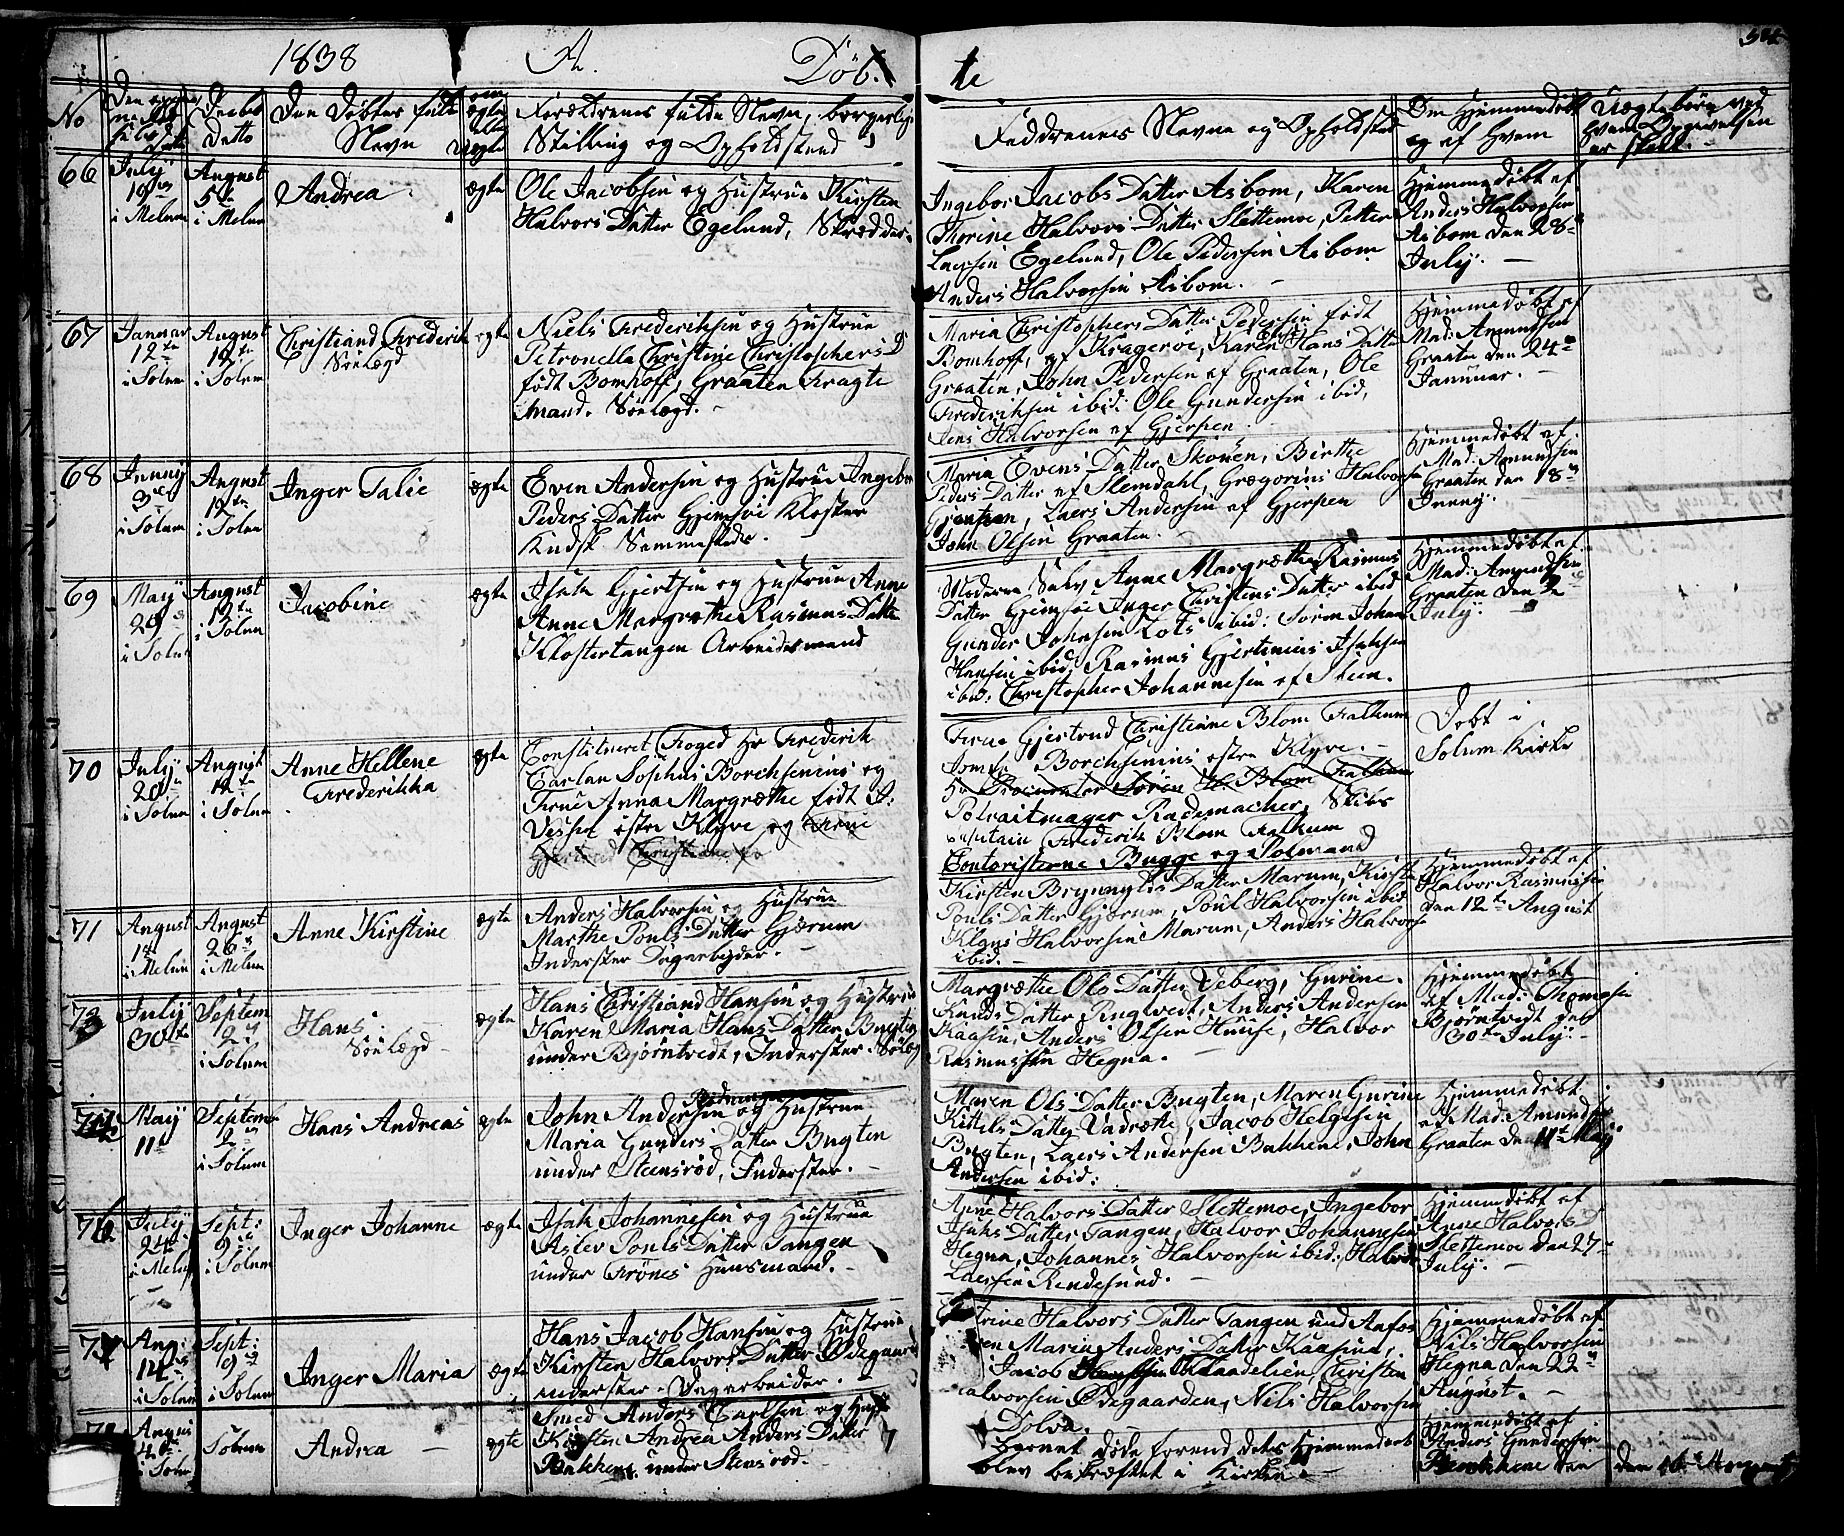 1838 A. Døb te
No
Den Døbtes fulde Navn
Forældrenes fulde Navn, borgerlige Stilling og Opholdsted
Faddrenes Navne og Opholdsted
Om Hjemmedøbt og af hvem
66
July
i Melum
August
5te
i Melum
Andrea
ægte
Ole Jacobsen og Hustrue Kirsten
Halvors Datter Egelund, Skrædder.
Ingebor Jacobs Datter Aasbom, Karen
Thorine Halvors Datter Slettemoe, Petter
Larssen Egelund, Ole Pedersen Aasbom
Anders Halvorsen Aasbom.
Hjemmedøbt af
Anders Halvorsen
Aasbom den 28
July.
67
Januar
12te
i Solum
August
12te
i Solum
Christiand Frederik
Sønlægd
ægte
Niels Frederiksen og Hustrue
Petronella Christine Christophers D
født Bomhoff, Graaten Fragte
mand. Sønlægd.
Maria Christophers Datter Pedersen født
Bomhoff, af Krageröe, Karen Hans Datter
Graaten, John Pedersen af Graaten, Ole
Frederiksen ibid: Ole Gundersen ibid,
Jens Halvorsen af Gjerpen.
Hjemmedøbt af
Mad: Amundsen
Graaten den 24
Januar.
68
3
i Solum
August
12te
i Solum
Inger Talie
ægte
Even Andersen og Hustrue Ingebor
Peders Datter Gjemsøe Kloster
Maria Evens Datter Skouen, Birthe
Peders Datter af Slemdahl, Grægorius Halvorsen
Gjerpen, Laers Andersen af Gjerpen
John Olsen Graaten.
Hjemmedøbt af
Mad: Amundsen
Graaten den 18
69
May
20
i Solum
August
12te
i Solum
Jacobine
ægte
Isak Gjertsen og Hustrue Anne
Anne Margrethe Rasmus Datter
Klostertangen Arbeidsmand
Moderen Selv Anne Margrethe Rasmus
Datter Gjemsøe Inger Christens Datter ibid
Gunder Johnsen Lots ibid: Sören Johan
Hansen ibid: Rasmus Gjertinius Isaksen
ibid: Christopher Johannesen af Skien.
Hjemmedøbt af
Mad: Amundsen
Graaten den 2
July.
70
July
20
i Solum
August
12te
i Solum
Anne Hellene
Frederikka
ægte
Constitueret Foged Hr Frederik
Carlan Sophus Borchsenius og
Frue Anna Margrethe født
østre Klyve og Frue
Gjertrud Christiane
Frue Gjertrud Christiane Blom Falkum
Jomfr Borchsenius østre Klyve.
Hr Procurator Sören H. Blom Falkum
Rademacher, Skibs
Frederik Blom Falkum
Contoristerne Bugge og Solmand
Døbt i
Solum Kirke
71
August
i Melum
August
26
i Melum
Anne Kirstine
ægte
Anders Halvorsen og Hustrue
Marthe Pouls Datter Gjerum
Inderster Dagarbejder.
Kirsten Brynnyldts Datter Marum, Kirsten
Pouls Datter Gjerum, Poul Halvorsen ibid
Klaus Halvorsen Marum, Anders Halvorsen
ibid.
Hjemmedøbt af
Halvor Rasmussen
den 12te August
73
July
30te
Septem
2
i Solum
Hans
Sønlægd
ægte
Hans Christiand Hansen og Hustrue
Karen Maria Hans Datter Bugten
under Bjørntvedt, Inderster.
Margrethe Ols Datter Veberg, Gurine
Knuds Datter Ruglvedt, Anders Andersen
Kaasin, Anders Olsen Huuse, Halvor
Rasmussen Hegna.
Hjemmedøbt
af Mad: Thomasen
Bjørntvedt den
30te July.
74
May
11te
Septemb
2
i Solum
Hans Andreas
ægte
John Andersen og Hustrue
Maria Gunders Datter Bugten
under Steensrød, Inderster.
Maren Ols Datter Bugten, Maren Gurine
Kittils Datter Vadrætte, Jacob Helgesen
Bugten, Laers Andersen Bakkene, John
Andersen ibid:
Hjemmedøbt
af Mad: Amundsen
Graaten den 11te May
76
July
24
i Melum
Sept:
9
i Solum
Inger Johanne
ægte
Isak Johannesen og Hustrue
Aslev Pouls Datter Tangen
under Frönes Huusmand.
Anne Halvors Datter Slettemoe, Ingebor
Isaks Datter Tangen, Halvor Johannesen
Hegna, Johannes Halvorsen ibid: Halvor
Larssen Rindesund.
Hjemmedøbt af
Anne Halvors D
Slettemoe den 27
July.
77
Aug:
14
i Solum
Sept:
9
i Solum
Inger Maria
ægte
Hans Jacob Hansen og Hustrue
Kirsten Halvors Datter Ødegaard
inderster. Dagarbeider.
Halvors Datter Tangen und Aafos
Maria Anders Datter Kaasine,
Jacob Hansen Klaadelien, Christen
Halvorsen Ødegaarden, Nils Halvorsen
Dolva.
Hjemmedøbt af
Nils Halvorsen
Hegna den 22
August.
i Solum
Solum
Andrea
ægte
Smed Anders Carlsen og Hust
Kirsten Andrea Anders Datter
Bakken under Steensrød.
Barnet døde forend dets Hjemmedaab
blev bekræftet i Kirken.
Hjemmedøbt af
Anders Gundersen
Bakkene den
den 16 August